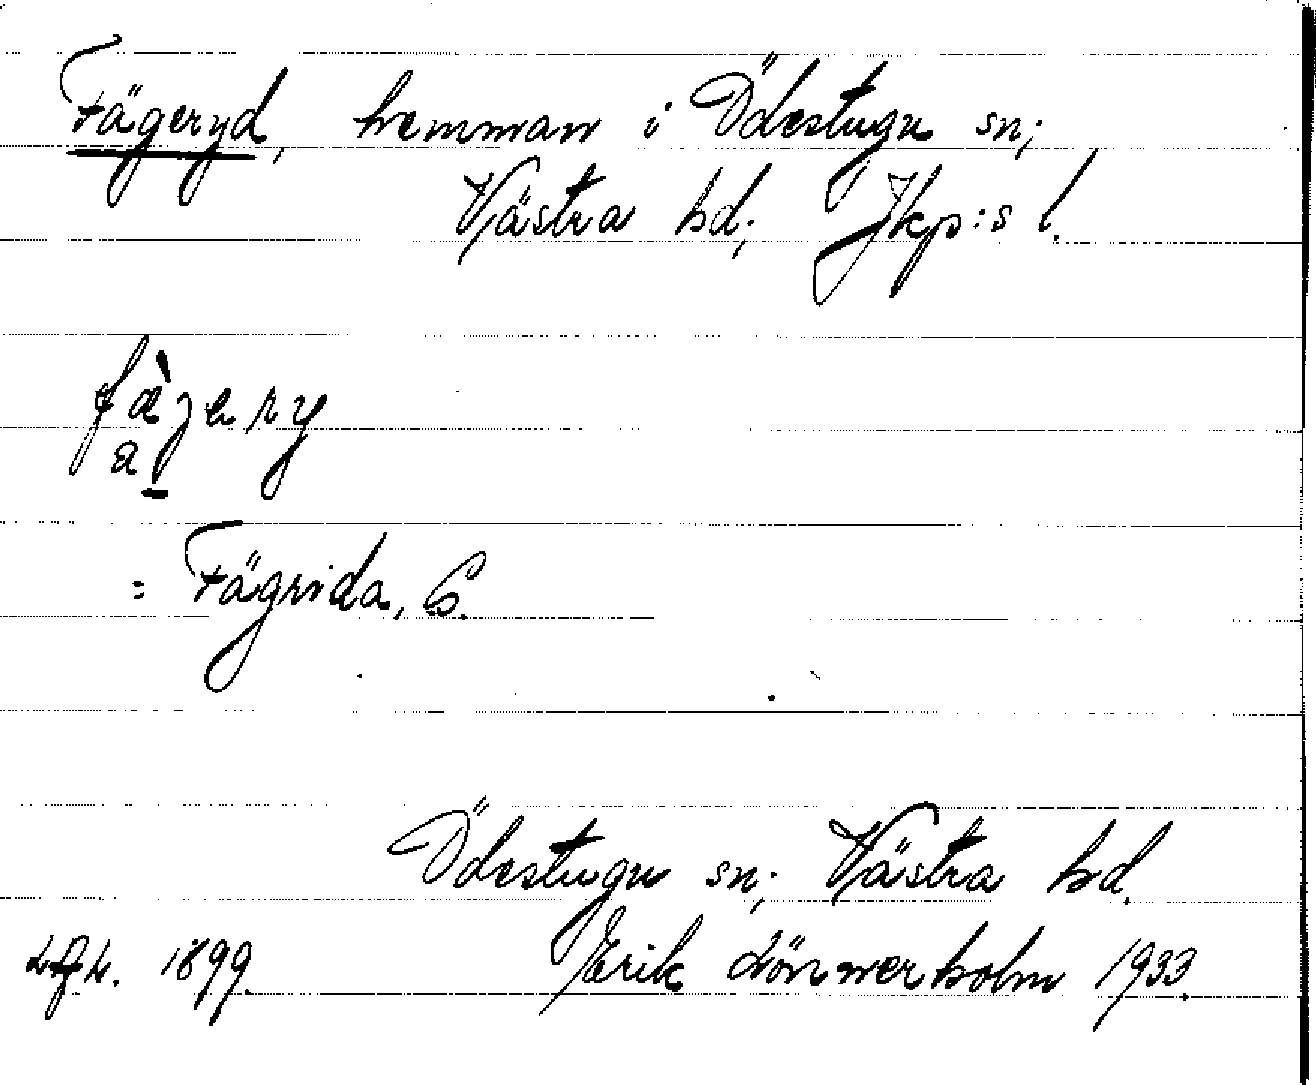 Fägeryd, hemman i Ödestugu sn;
Västra hd; Jkp:s l.
fæ̀gery
a
= Fägrida, G.
Ödestugu sn; Västra hd.
1899. Erik Lönnerholm 1933.